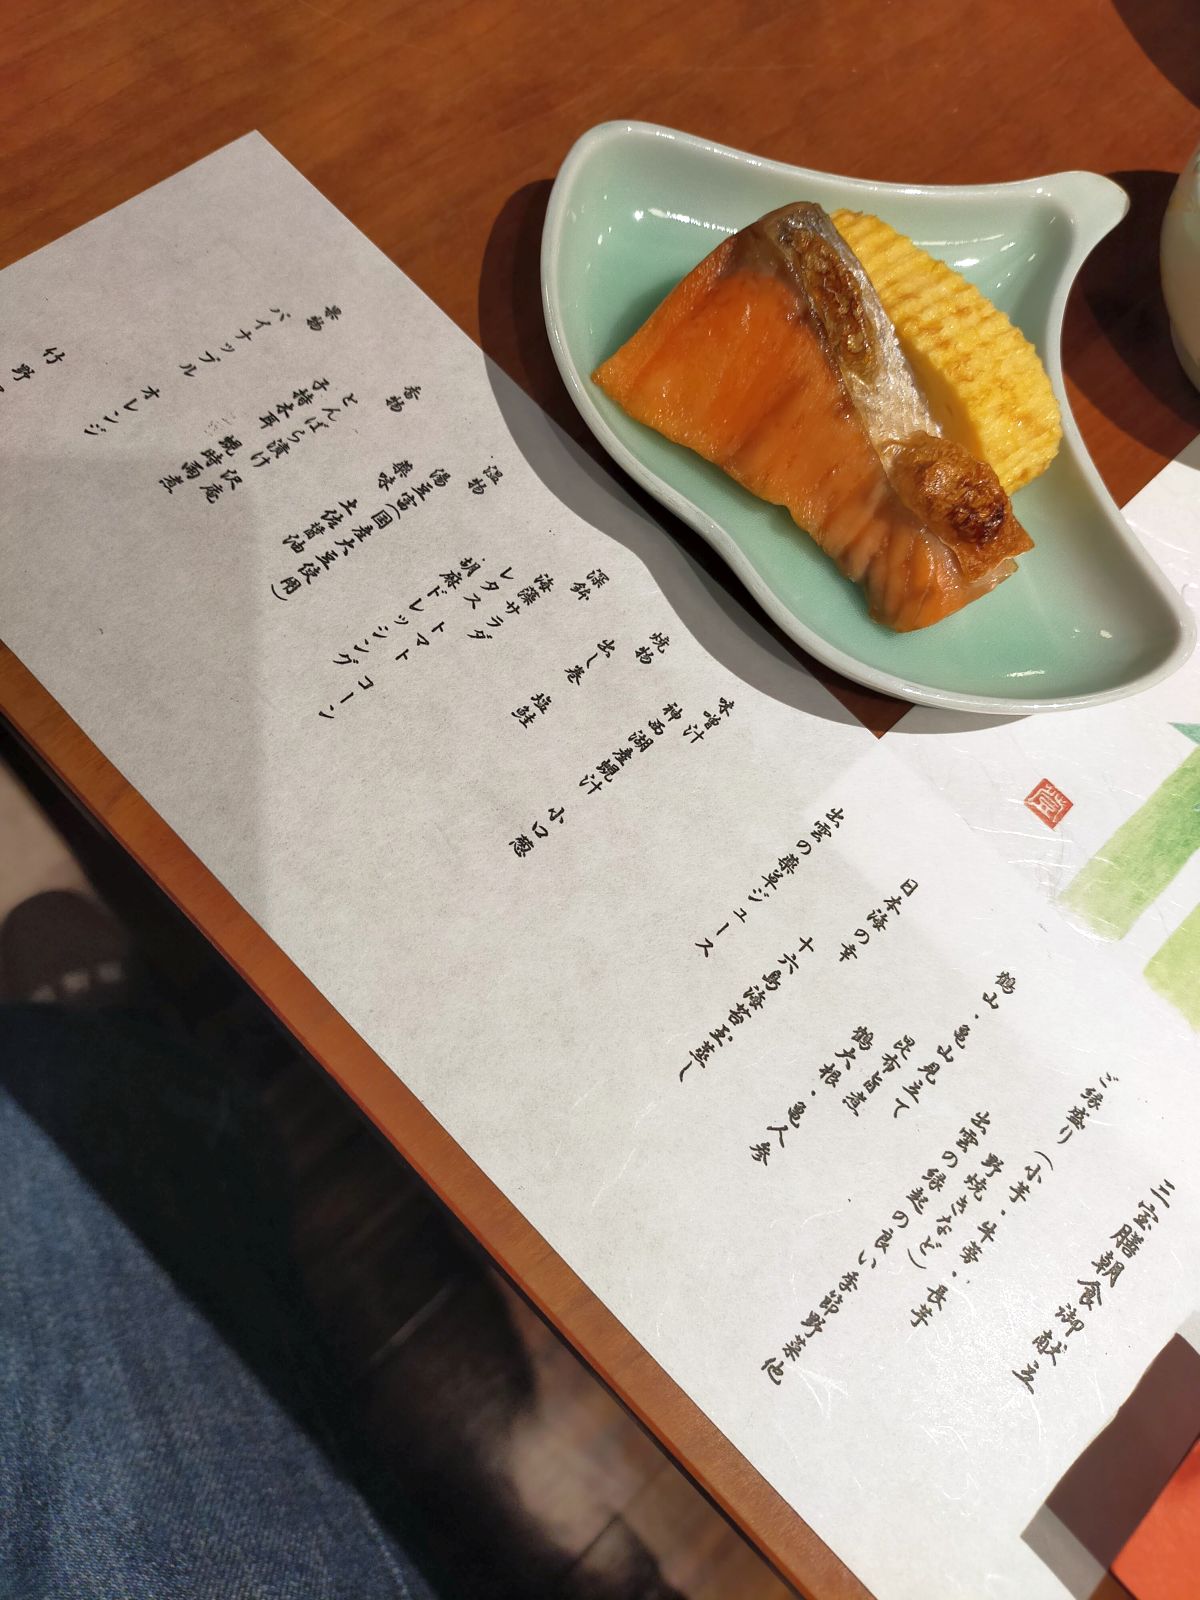 三宝膳朝食御献立
ご縁盛り（小芋・牛蒡・長芋
野焼きなど）
出雲の縁起の良い季節野菜他
鶴山・亀山見立て
昆布旨煮
鶴大根・亀人参
日本海の幸
十六島海苔玉蒸し
出雲の薬草ジュース
味噌汁
神西湖産蜆汁
小口葱
焼物
出し巻 塩鮭
深鉢
海藻サラダ
レタス トマト コーン
胡麻ドレッシング
温物
湯豆富（国産大豆使用）
薬味 土佐醤油
香物
とんばら漬け 沢庵
子持木耳 蜆時雨煮
果物
パイナップル オレンジ
竹野